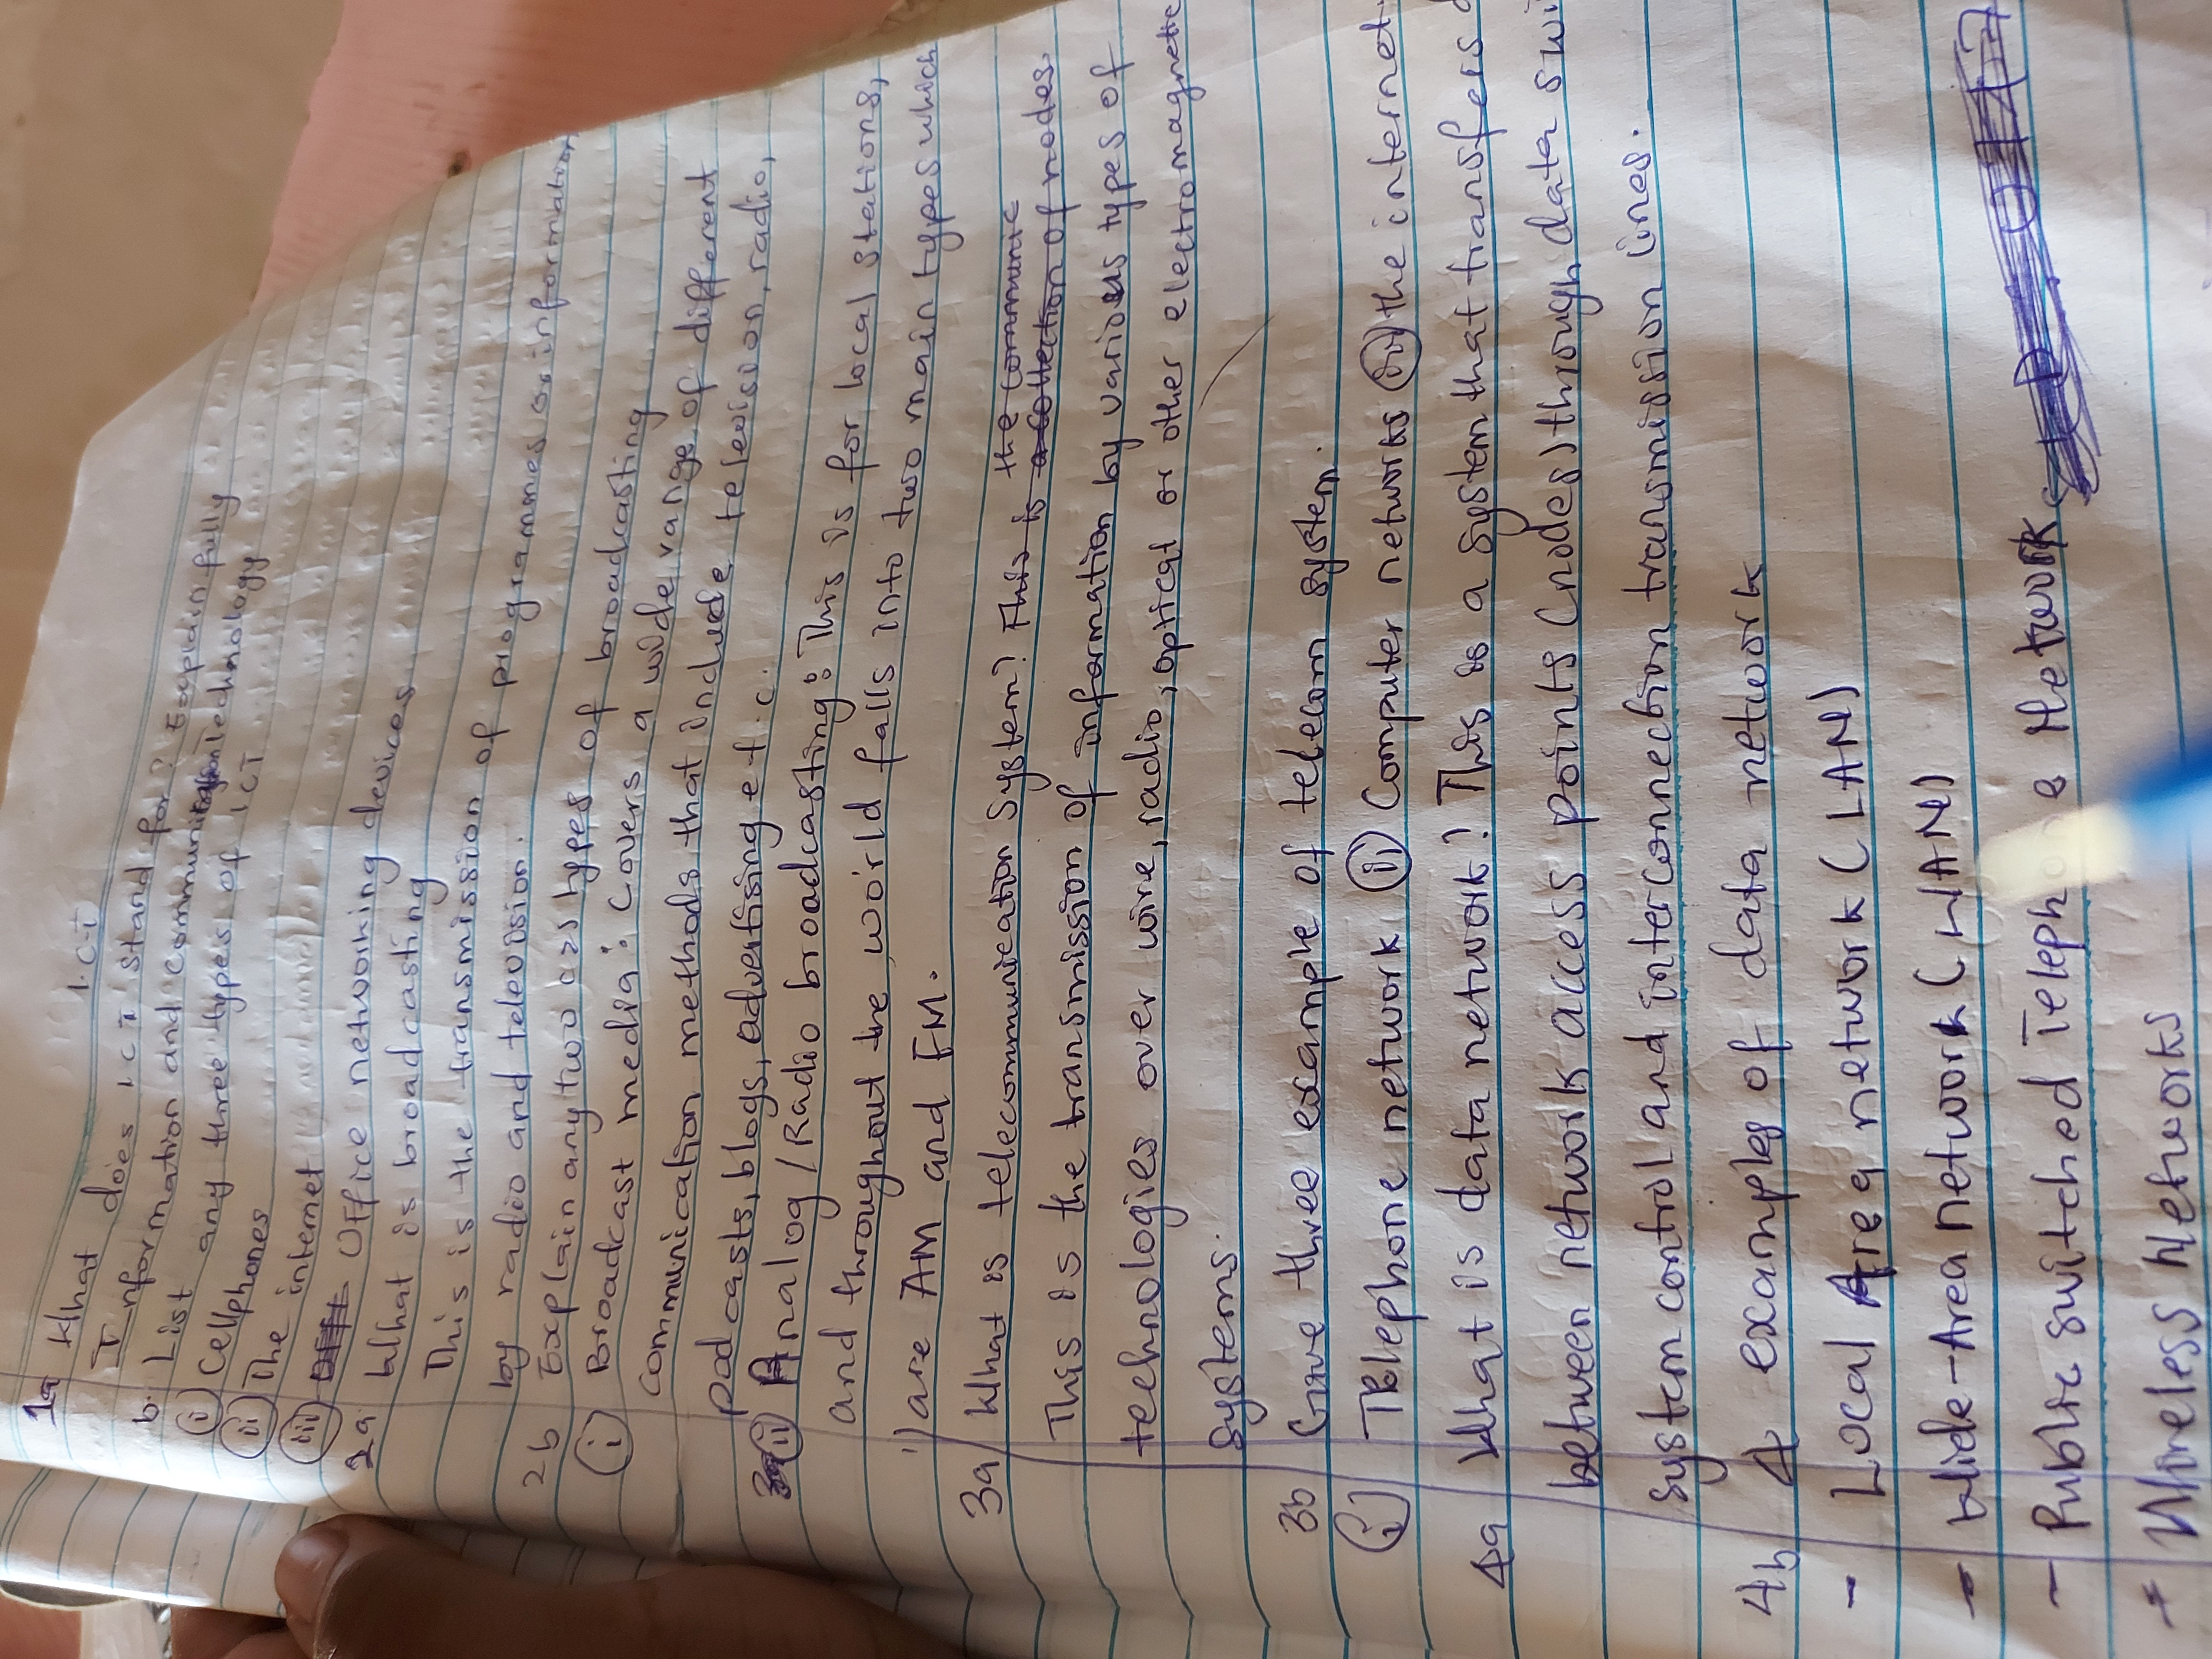 I.C.T
1a What does I C T stand for? Explain fully
Information and communication technology
b. List any three types of ICT
(i) Cellphones
(ii) The internet
(iii) Office networking devices
2a What is broadcasting
This is the transmission of programmes or information
by radio and television.
2b Explain any two types of broadcasting
(i) Broadcast media: Covers a wide range of different
communication methods that include television, radio,
podcasts, blogs, advertising e.t.c.
(ii) Analog/Radio broadcasting: This is for local stations,
and throughout the world falls into two main types which
are AM and FM.
3a What is telecommunication System? This is a collection of nodes the communic
This is the transmission of information by various types of
technologies over wire, radio, optical or other electromagnetic
Systems.
3b Give three example of telecom system.
(i) Telephone network (ii) Computer networks (iii) the internet
4a What is data network? This is a system that transfers
between network access points (nodes) through data
system control and interconnection transmission lines.
4b 4 examples of data network
- Local Area network (LAN)
- Wide-Area network (WAN)
- Public switched Telephone Network
- Wireless Networks